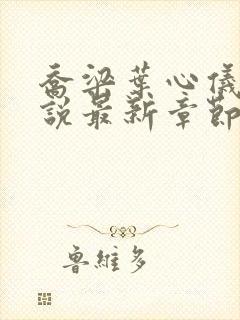 喬梁葉心儀
說最新章節
魯維多